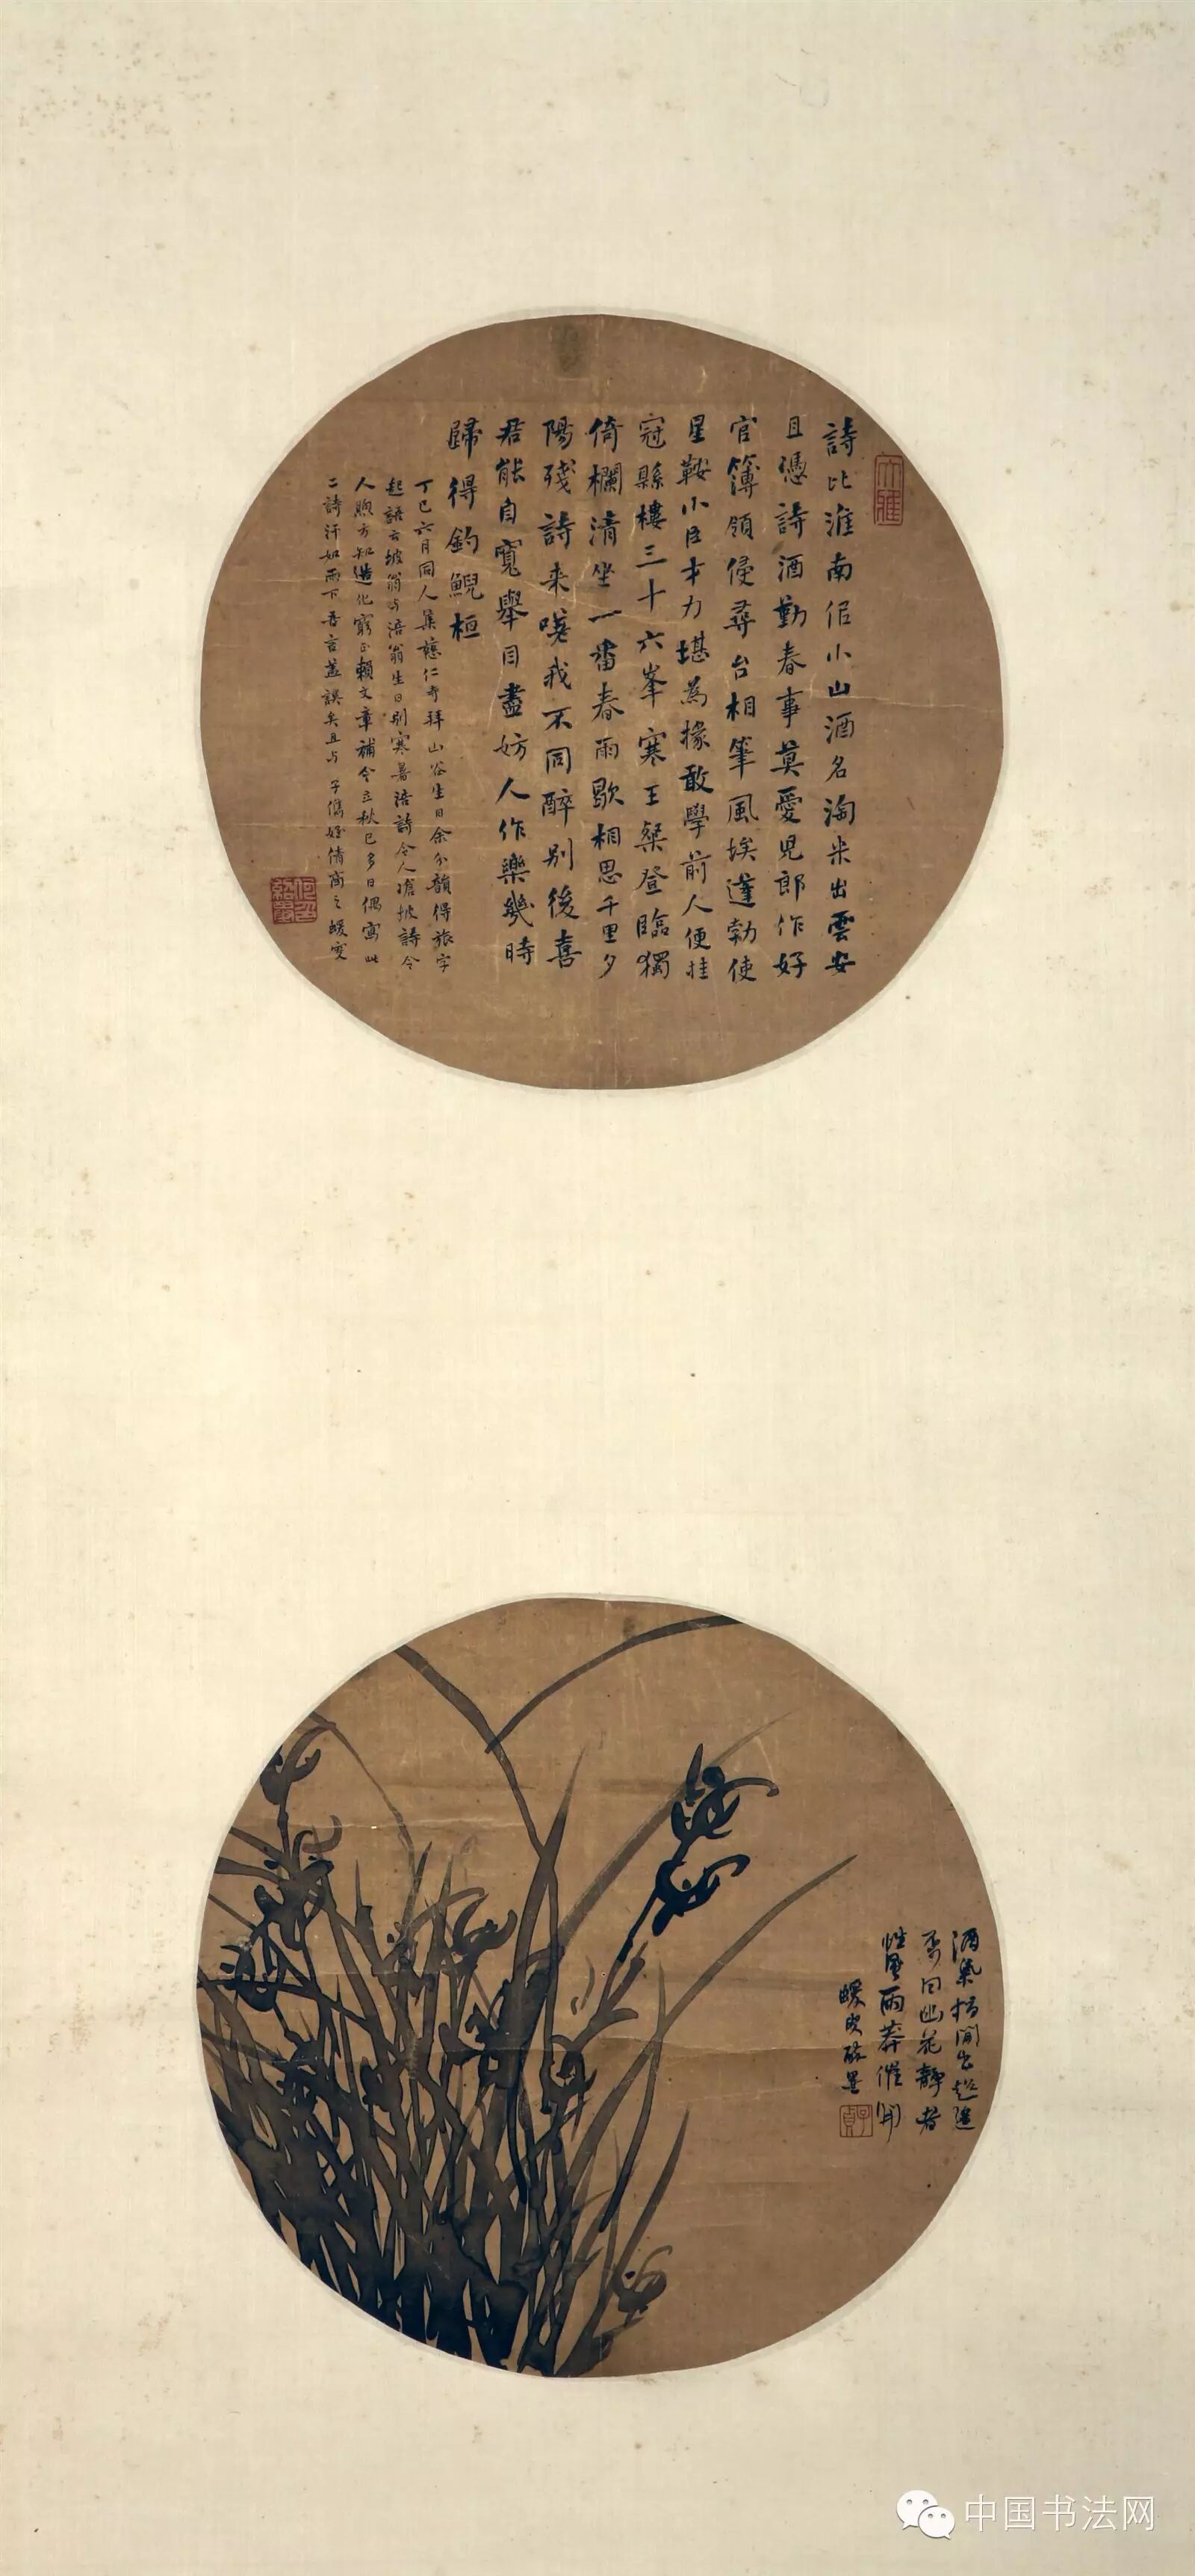 詩比淮南侶小山酒名淘米出雲安
且憑詩酒勤春事莫愛兒郎作好
官簿領侵尋台相筆風埃蓬勃使
星鞍小臣才力堪為掾敢學前人便挂
冠縣樓三十六峯寒王粲登臨獨
倚欄清坐一番春雨歇相思千里夕
陽殘詩来嘆我不同醉別後喜
君能自寬舉目盡妨人作樂幾時
歸得釣鯢桓
丁巳六月同人集慈仁寺拜山谷生日余分韻得旅字
起語云坡翁与涪翁生日別寒暑涪詩令人滄坡詩令
人煦方知造化窮正賴文章補今立秋已多日偶寫此
二詩汗如雨下吾言蓋誤矣且与子儁姪倩商之蝯叟
大雅
何紹基
酒氣指間出
香回幽花靜者
性風雨莽催開
蝯叟
子貞
中国书法网